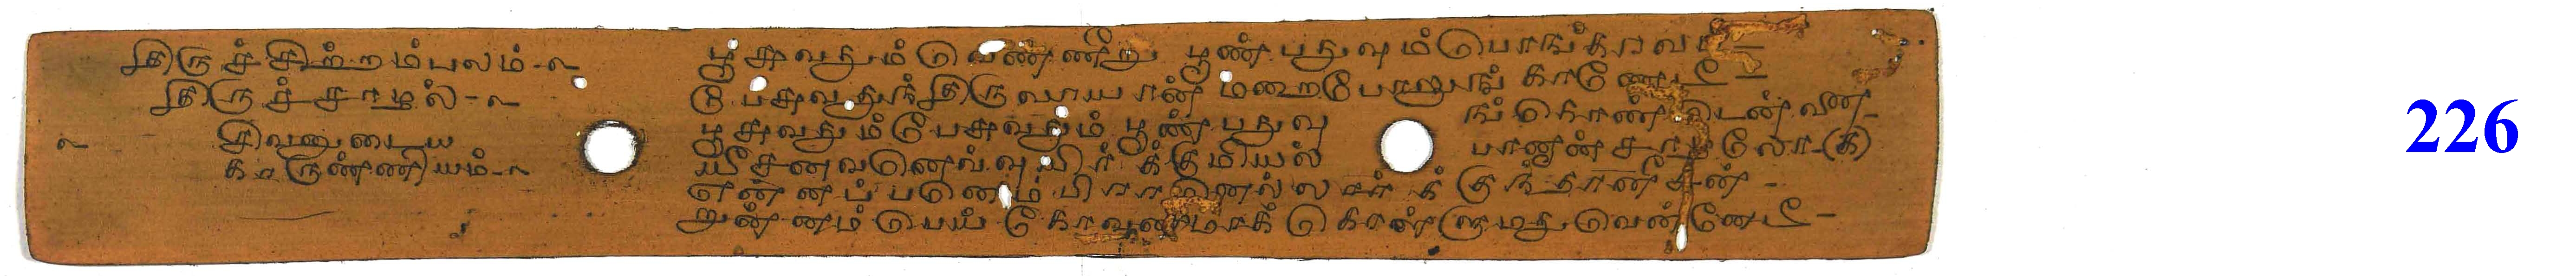 திருச்சிற்றம்பலம்-௳
திருச்சாழல்-௳
சிவனுடைய
காருண்ணியம்-௳
பூசுவதும் வெண்ணீறு பூண்பதுவும் பொங்கரவம்-
பேசுவதுந் திருவாயான் மறைபோலுங் காணேடீ-
பூசுவதும் பேசுவதும் பூண்பதுவு ங்கொண்டென்னீ-
யீசனவனெவ்வுயிர்க்குமியல் பானான்சாழலோ-(௧)
என்னப்பனெம்பிரானெல்லார்க்குந்தானீசன்-
றுன்னம்பெய் கோவணமாக் கொள்ளுமது வென்னேடீ-
226